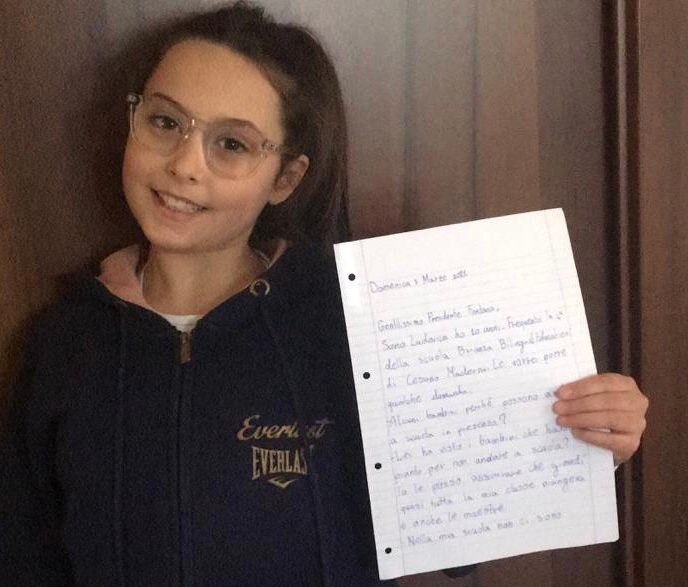 Domenica 7 Marzo 2021
Gentilissimo Presidente Fontana,
Sono Ludovica ho 10 anni. Frequento la 5ª
della scuola Brianza Bilingual Education
di Cesano Maderno. Le vorrei porre
qualche domanda.
Alcuni bambini perché possono a
a scuola in presenza?
Lei ha visto i bambini che ha
pianto per non andare a scuola?
Io le posso assicurare che giovedì
quasi tutta la mia classe piangeva
e anche le maestre.
Nella mia scuola non ci sono
Everlast
EVERLAS